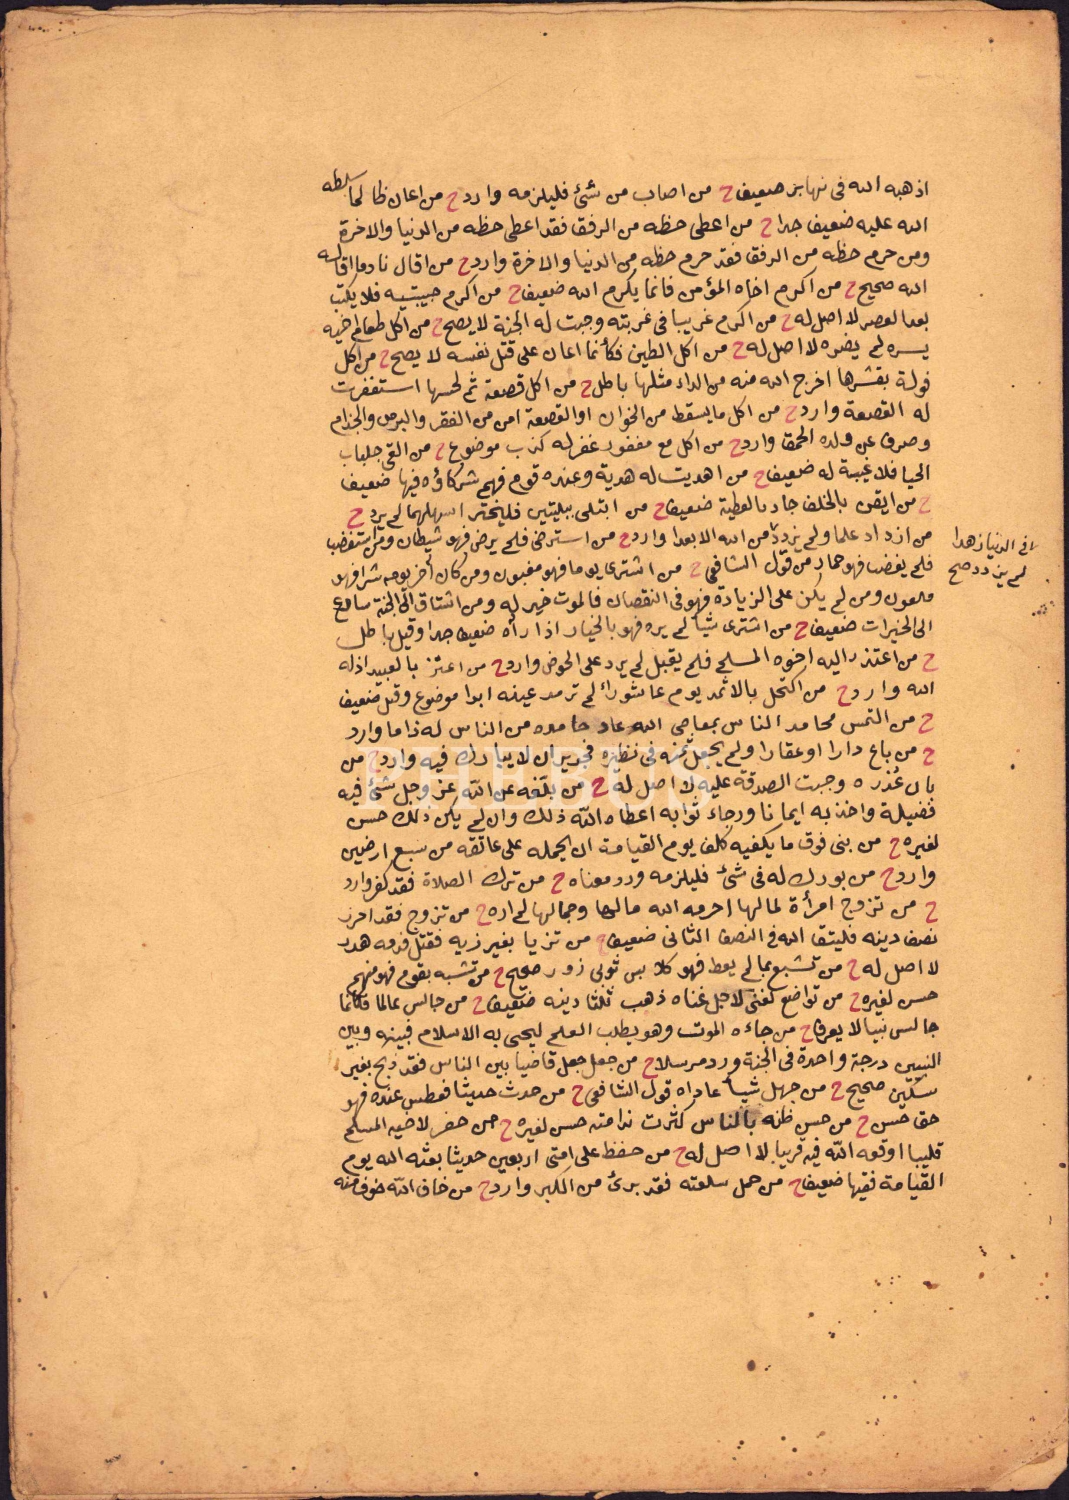 اذهبه الله في نهابر ضعيف ح من اصاب من شئ فليلزمه وارد ح من اعان ظالما سلطه
الله عليه ضعيف جدا ح من اعطى حظه من الرفق فقد اعطى حظه من الدنيا والاخرة
ومن حرم حظه من الرفق فقد حرم حظه من الدنيا والاخرة وارد ح من اقال نادما اقاله
الله صحيح ح من اكرم اخاه المؤمن فانما يكرم الله ضعيف ح من اكرم حبيبتيه فلا يكتب
بعد العصر لا اصل له ح من اكرم غريبا في غربته وجبت له الجنة لا يصح ح من اكل طعام اخيه
يسره لم يضره لا اصل له ح من اكل الطين فكأنما اعان على قتل نفسه لا يصح ح من اكل
فولة بقشرها اخرج الله منه من الداء مثلها باطل ح من اكل قصعة ثم لحسها استغفرت
له القصعة وارد ح من اكل ما يسقط من الخوان او القصعة امن من الفقر والبرص والجذام
وصرف عن ولده الحمق وارد ح من اكل مع مغفور غفر له كذب موضوع ح من القى جلباب
الحيا فلا غيبة له ضعيف ح من اهديت له هدية وعنده قوم فهم شركاؤه فيها ضعيف
ح من ايقن بالخلف جاد بالعطية ضعيف ح من ابتلى ببليتين فليختر اسهلهما لم يرد ح
من ازداد علما ولم يزدد من الله الا بعدا وارد ح من استرضى فلم يرض فهو شيطان ومن استغضب
في الدنيا زهدا
لم يزدد صح
فلم يغضب فهو حمار من قول الشافعي ح من اشترى يوما فهو مغبون ومن كان اخر يومه شرا فهو
ملعون ومن لم يكن على الزيادة فهو في النقصان فالموت خير له ومن اشتاق الى الجنة سارع
الى الخيرات ضعيف ح من اشترى شيأ لم يره فهو بالخيار اذا رأه ضعيف جدا وقيل باطل
ح من اعتذر اليه اخوه المسلم فلم يقبل لم يرد على الحوض وارد ح من اعتز بالعبيد اذله
الله وارد ح من اكتحل بالاثمد يوم عاشوراء لم ترمد عينه ابدا موضوع وقيل ضعيف
ح من التمس محامد الناس بمعاصي الله عاد حامده من الناس له ذاما وارد
ح من باع دارا او عقارا ولم يجعل ثمنه في نظيره فجدير ان لا يبارك فيه وارد ح من
بان عذره وجبت الصدقة عليه لا اصل له ح من بلغه عن الله عز وجل شئ فيه
فضيلة واخذ به ايمانا ورجاء ثوابه اعطاه الله ذلك وان لم يكن ذلك حسن
لغيره ح من بنى فوق ما يكفيه كلف يوم القيامة ان يحمله على عاتقه من سبع ارضين
وارد ح من بورك له في شئ فليلزمه ورد معناه ح من ترك الصلاة فقد كفر وارد
ح من تزوج امرأة لمالها احرمه الله مالها وجمالها لم اره ح من تزوج فقد احرز
نصف دينه فليتق الله في النصف الثاني ضعيف ح من تزيا بغير زيه فقتل فدمه هدر
لا اصل له ح من تشبع بما لم يعط فهو كلابس ثوبي زور صحيح ح من تشبه بقوم فهو منهم
حسن لغيره ح من تواضع لغني لاجل غناه ذهب ثلثا دينه ضعيف ح من جالس عالما فكأنما
جالس نبيا لا يعرف ح من جاءه الموت وهو يطلب العلم ليحيى به الاسلام فبينه وبين
النبيين درجة واحدة في الجنة ورد مرسلا ح من جعل جعل قاضيا بين الناس فقد ذبح بغير
سكين صحيح ح من جهل شيأ عاداه قول الشافعي ح من حدث حديثا فعطس عنده فهو
حق حسن ح من حسن ظنه بالناس كثرت ندامته حسن لغيره ح من حفر لاخيه المسلم
قليبا اوقعه الله فيه قريبا لا اصل له ح من حفظ على امتى اربعين حديثا بعثه الله يوم
القيامة فقيها ضعيف ح من حمل سلعته فقد برئ من الكبر وارد ح من خاف الله خوف منه
PHEBUS